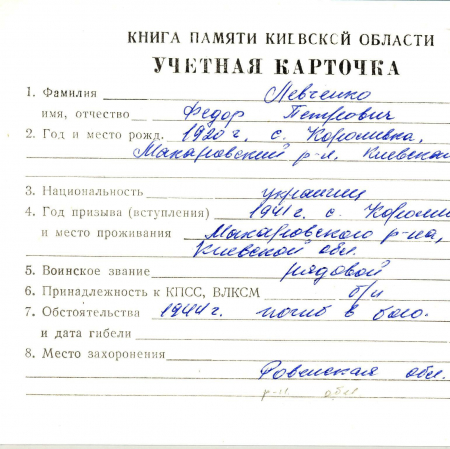 КНИГА ПАМЯТИ КИЕВСКОЙ ОБЛАСТИ
УЧЕТНАЯ КАРТОЧКА
1. Фамилия Левченко
имя, отчество Федор Петрович
2. Год и место рожд. 1920 г. с. Короливка,
Макаровский р-н, Киевской
3. Национальность украинец
4. Год призыва (вступления) 1941 г. с. Короли
и место проживания Макаровского р-на,
Киевской обл.
5. Воинское звание рядовой
6. Принадлежность к КПСС, ВЛКСМ б/п
7. Обстоятельства 1944 г. погиб в бою.
и дата гибели
8. Место захоронения
Ровенская обл.
р-н обл.